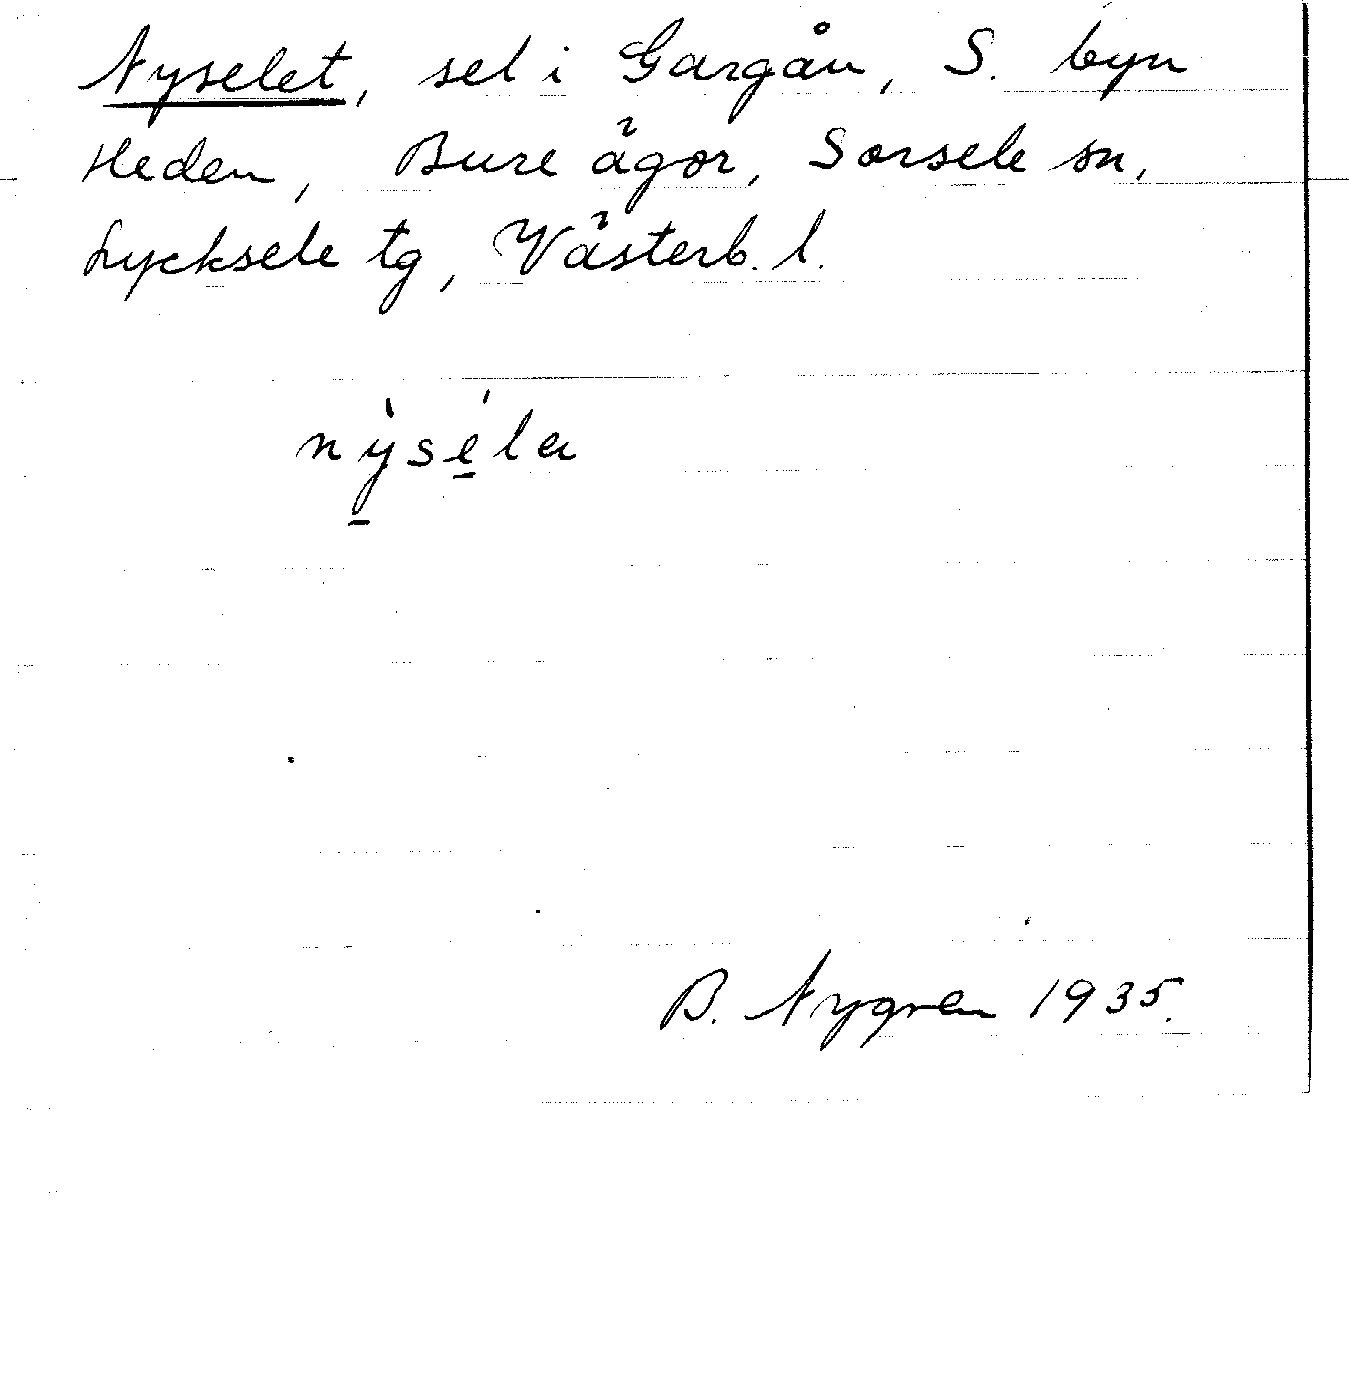 Nyselet, sel i Gargån, S. byn
Heden, Bure ägor, Sorsele sn,
Lycksele tg, Västerb. l.
nỳséla
B. Nygren 1935.